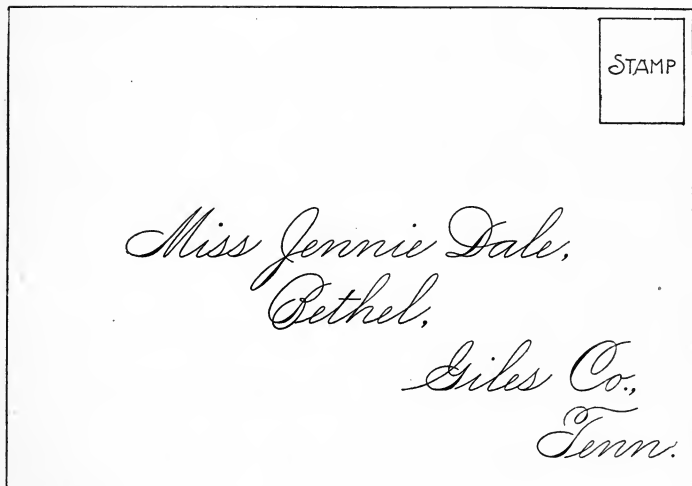 STAMP
Miss Jennie Dale,
Bethel,
Giles Co.,
Tenn.